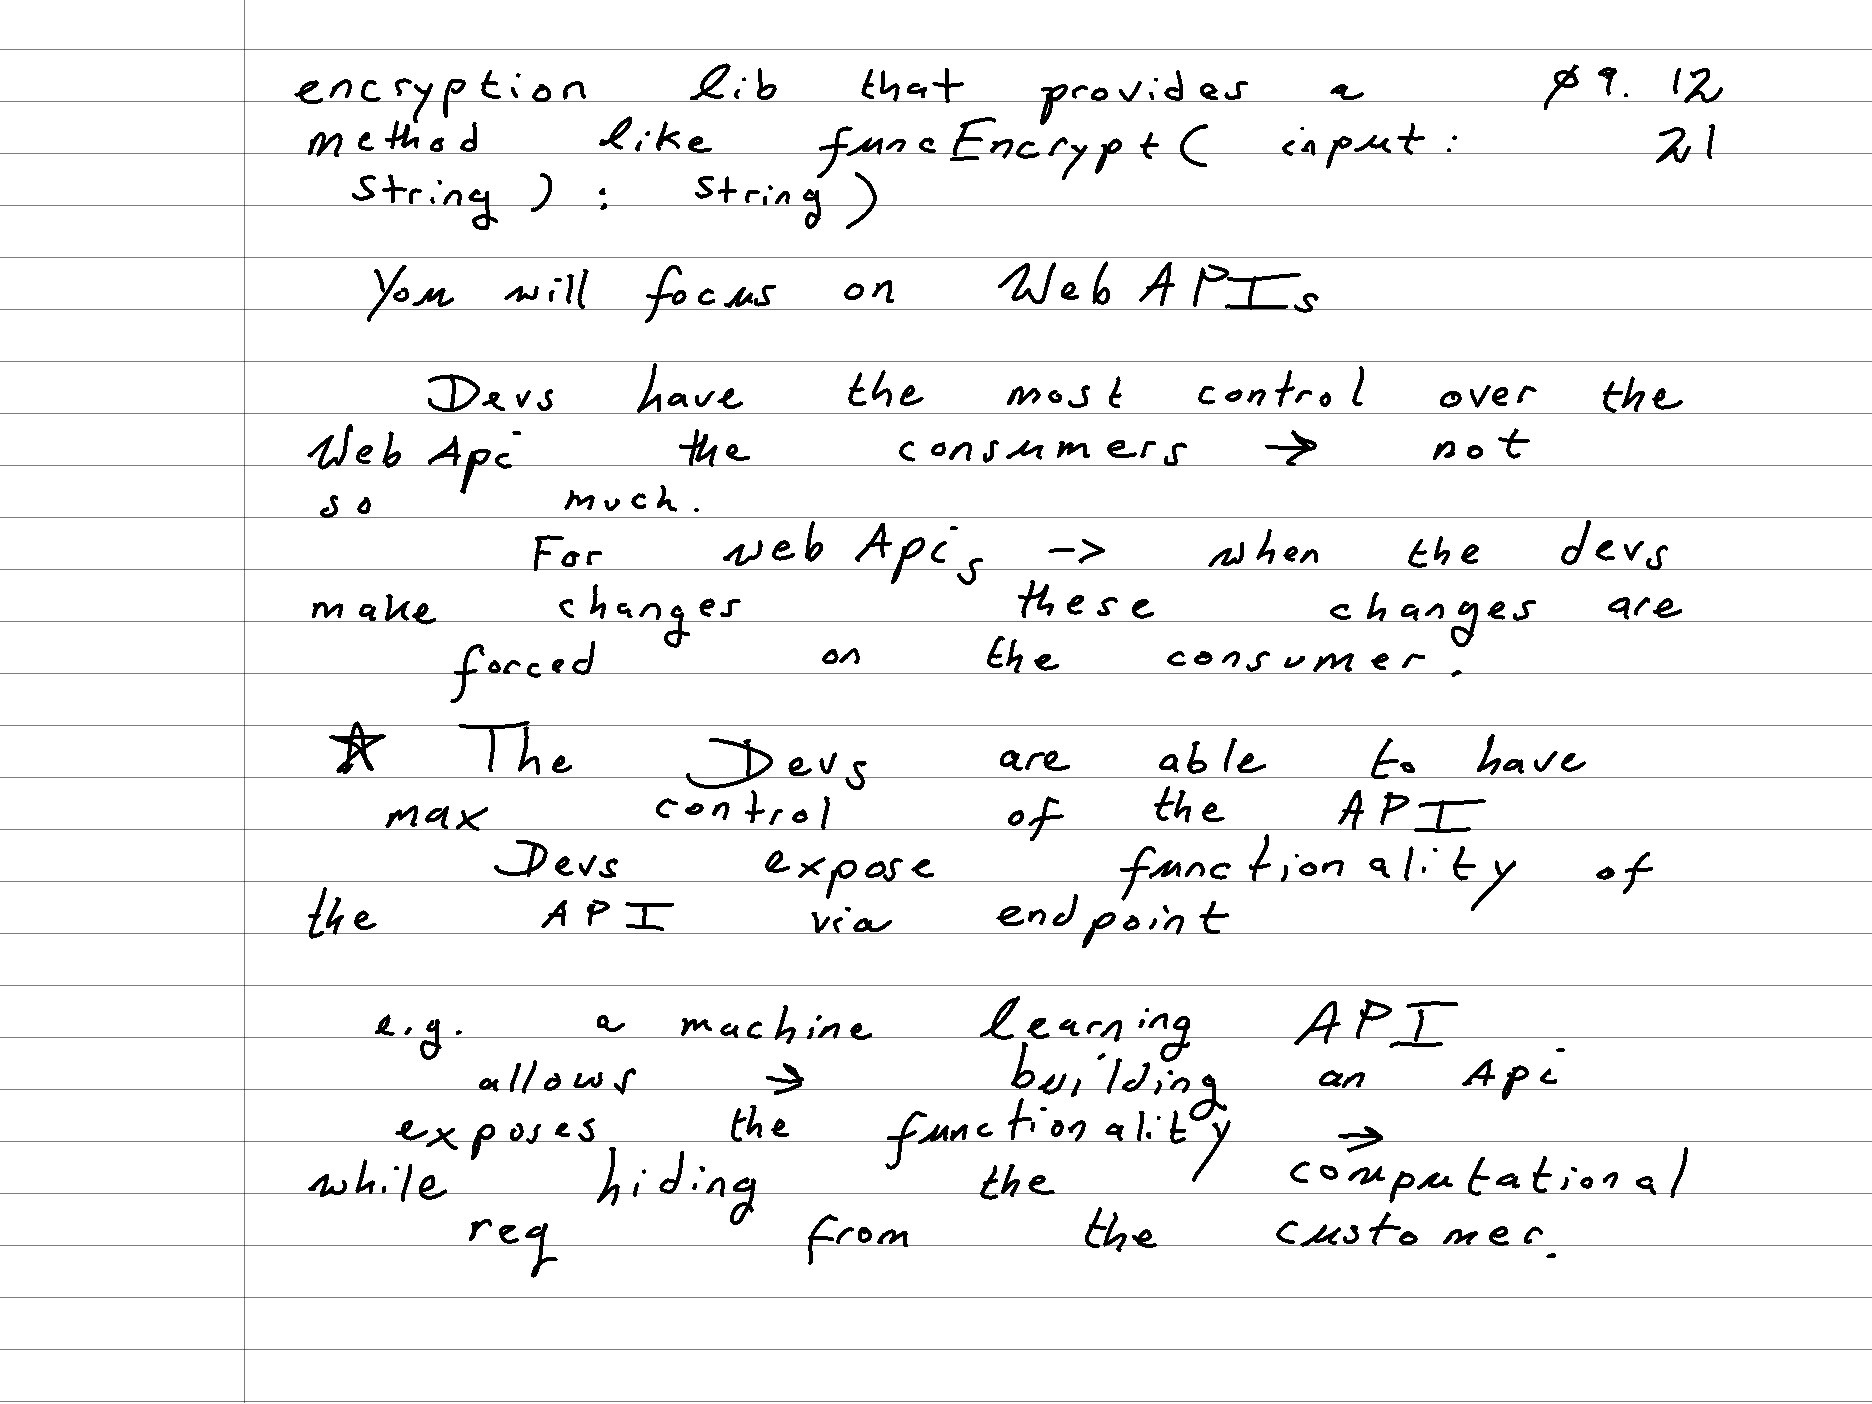 encryption lib that provides a ø9. 12
method like funcEncrypt( input: 21
string ) : string )
You will focus on Web APIs
Devs have the most control over the
Web Api the consumers → not
so much.
For web Apis -> when the devs
make changes these changes are
forced on the consumer.
☆ The Devs are able to have
max control of the API
Devs expose functionality of
the API via endpoint
e.g. a machine learning API
allows → building an Api
exposes the functionality →
while hiding the computational
req from the customer.